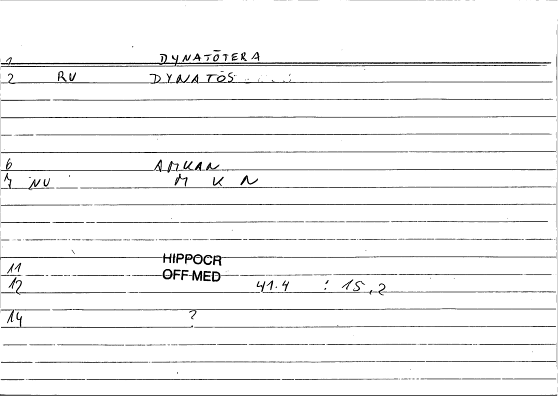 1 DYNATŌTERA
2 RV DYNATŌS
6 AMKAN
7 NV M K N
11 HIPPOCR
OFF-MED
12 41.4 : 15,2
14 ?